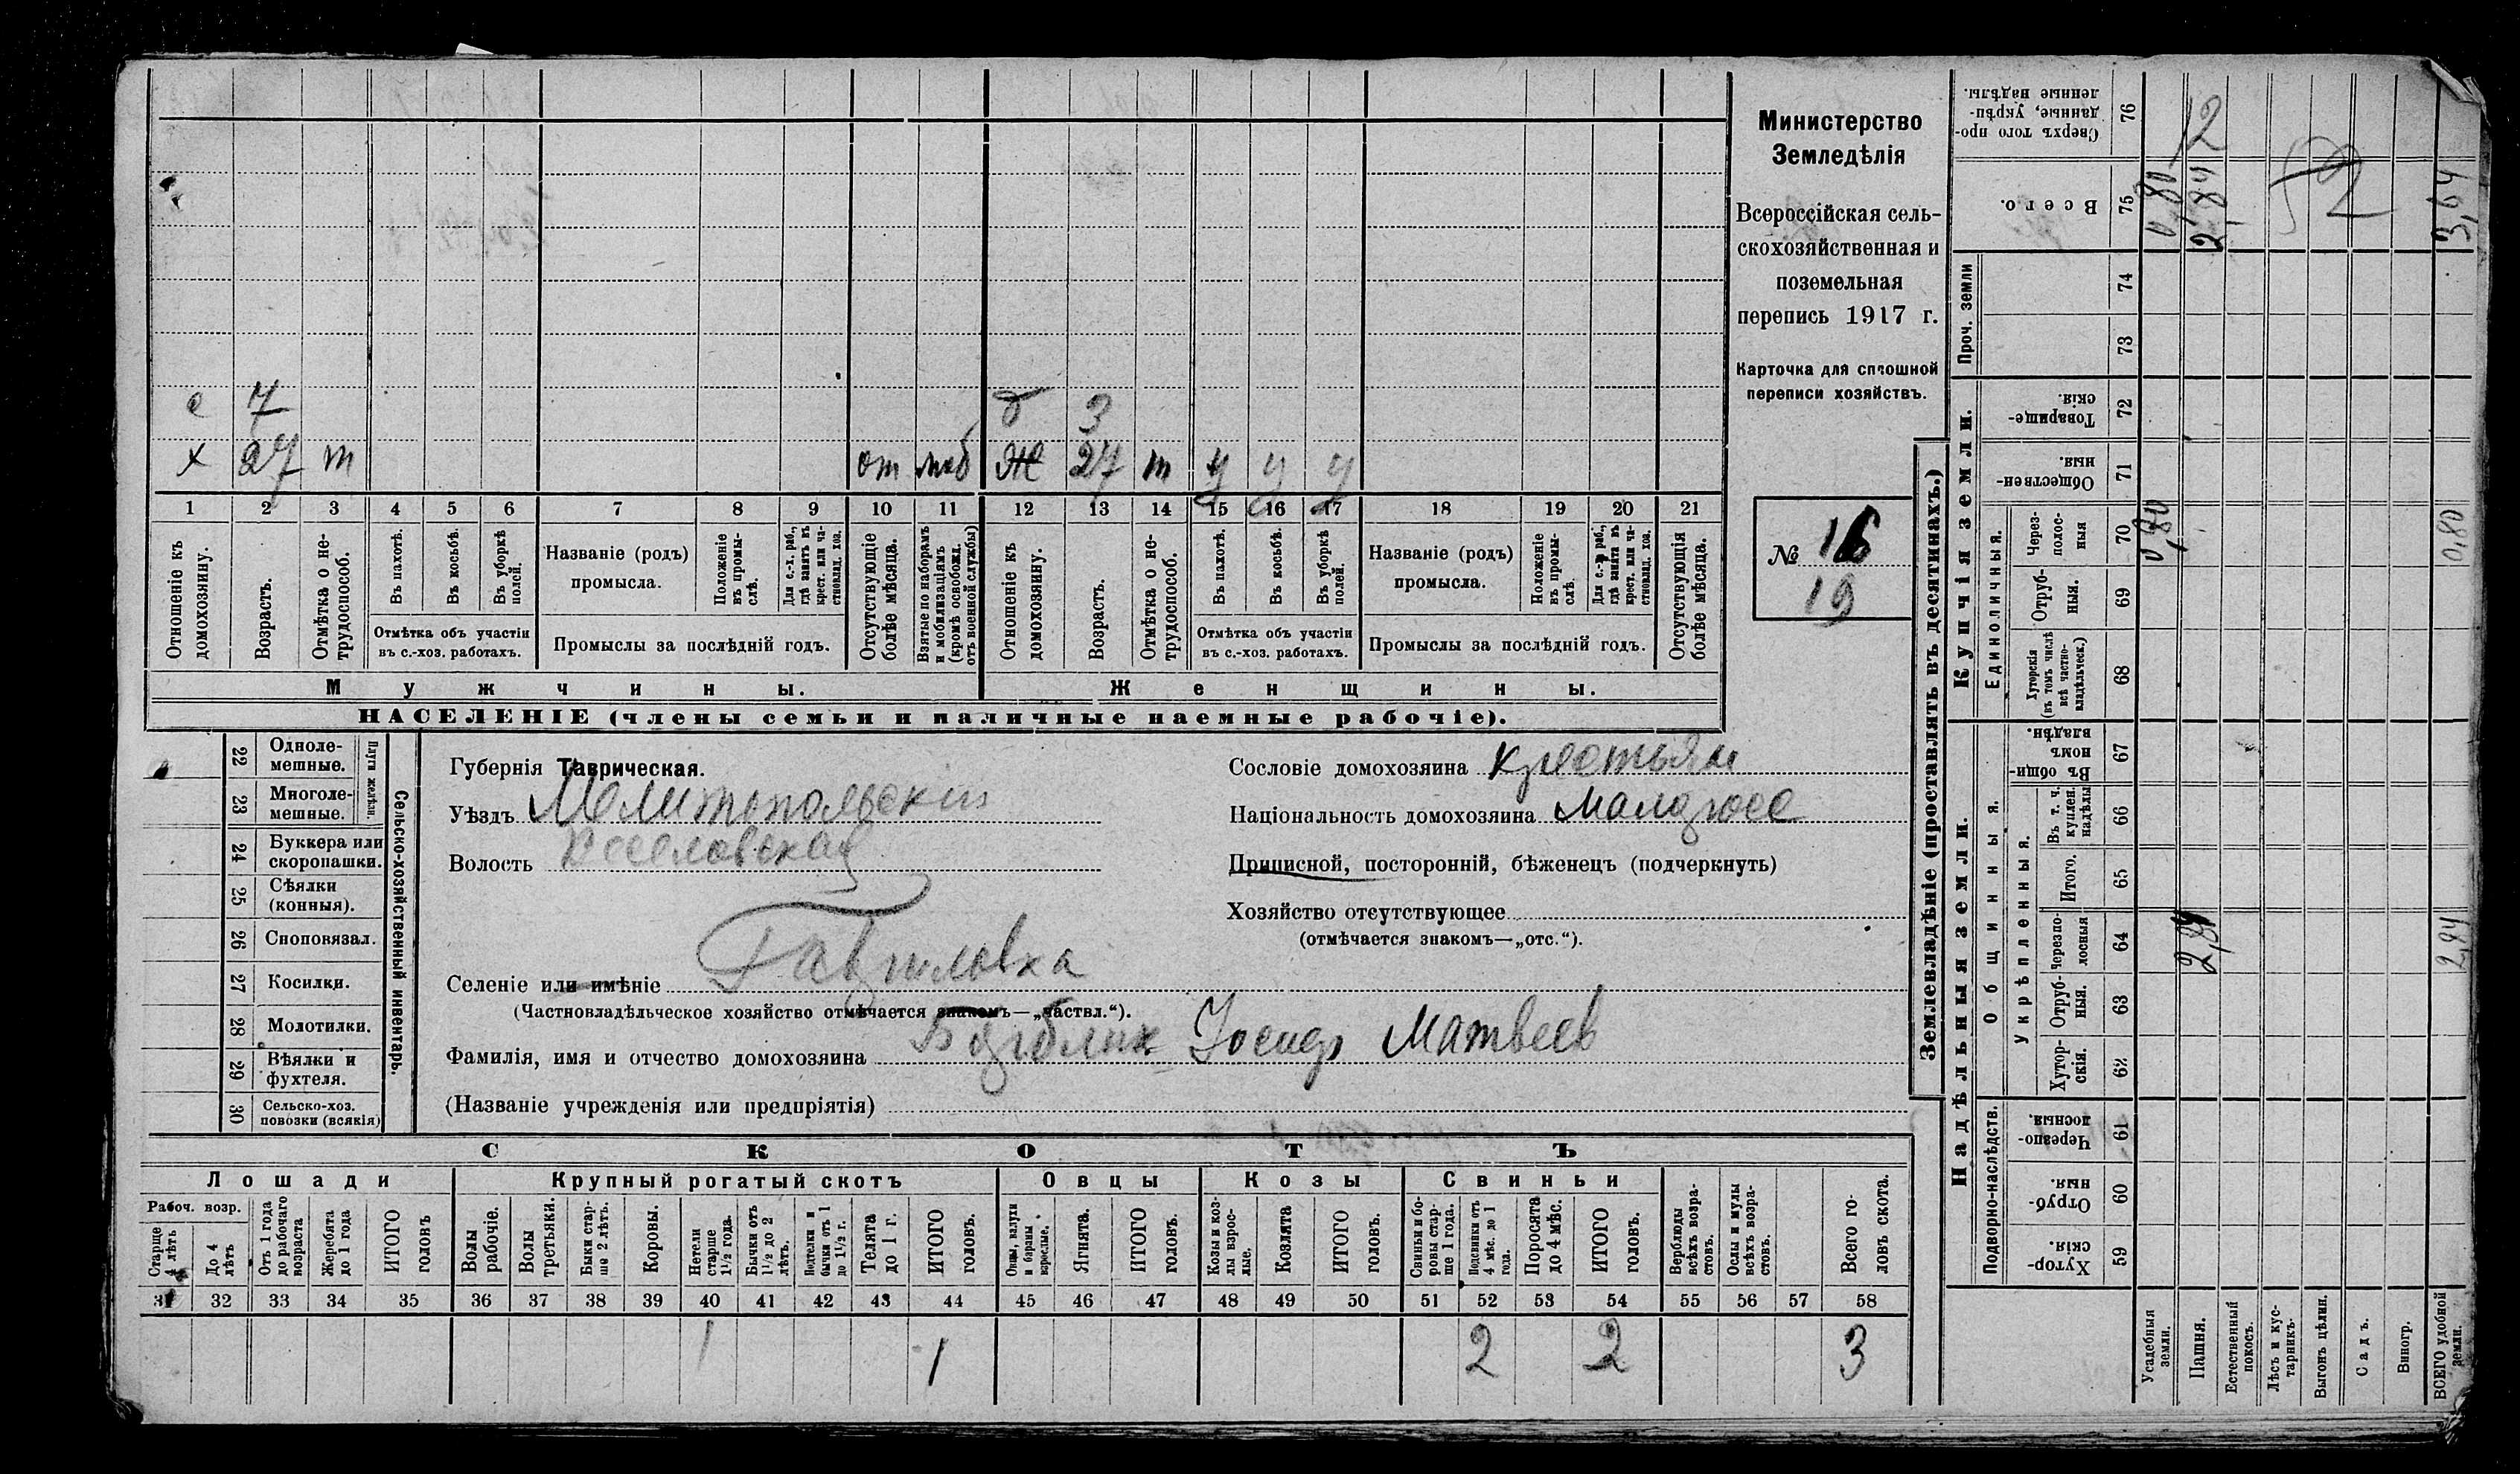 е 7 б 3
х 27 т от моб Ж 27 т у у у
1 2 3 4 5 6 7 8 9 10 11 12 13 14 15 16 17 18 19 20 21
Отношеніе къ домохозяину.
Возрастъ.
Отмѣтка о нетрудоспособ.
Въ пахотѣ.
Въ косьбѣ.
Въ уборкѣ полей.
Отмѣтка объ участіи
въ с.-хоз. работахъ.
Названіе (родъ)
промысла.
Положеніе въ промы-слѣ.
Для с.-х. раб., гдѣ занятъ въ крест. или ча-стновлад. хоз.
Промыслы за послѣдній годъ.
Отсутствующіе болѣе мѣсяца.
Взятые по наборамъ и мобилизаціямъ (кромѣ освобожд. отъ военной службы)
Отношеніе къ домохозяину.
Возрастъ.
Отмѣтка о не-трудоспособ.
Въ пахотѣ.
Въ косьбѣ.
Въ уборкѣ полей.
Отмѣтка объ участіи
въ с.-хоз. работахъ.
Названіе (родъ)
промысла.
Положеніе въ промы-слѣ.
Для с.-х. раб., гдѣ занята въ крест. или ча-стновлад. хоз.
Промыслы за послѣдній годъ.
Отсутствующія болѣе мѣсяца.
Мужчины. Женщины.
НАСЕЛЕНІЕ (члены семьи и наличные наемные рабочіе).
Министерство
Земледѣлія
Всероссійская сель-
скохозяйственная и
поземельная
перепись 1917 г.
Карточка для сплошной
переписи хозяйствъ.
№ 16
19
Сельско-хозяйственный инвентарь.
Плуги желѣзн.
22 Одноле-
мешные.
23 Многоле-
мешные.
24 Буккера или
скоропашки.
25 Сѣялки
(конныя).
26 Сноповязал.
27 Косилки.
28 Молотилки.
29 Вѣялки и
фухтеля.
30 Сельско-хоз.
повозки (всякія)
Губернія Таврическая.
Уѣздъ Мелитопольскій
Волость Веселовская
Селеніе или имѣніе Гавриловка
(Частновладѣльческое хозяйство отмѣчается знакомъ—„частвл.“).
Фамилія, имя и отчество домохозяина Іосифъ Матвеев
(Названіе учрежденія или предпріятія)
Сословіе домохозяина крестьян
Національность домохозяина малоросс
Приписной, посторонній, бѣженецъ (подчеркнуть)
Хозяйство отсутствующее
(отмѣчается знакомъ—„отс.“).
СКОТЪ
Лошади Крупный рогатый скотъ Овцы Козы Свиньи
Рабоч. возр.
Старше 4 лѣтъ
До 4 лѣтъ
Отъ 1 года до рабочаго возраста
Жеребята до 1 года
ИТОГО головъ
Волы рабочіе.
Волы третьяки.
Быки стар-ше 2 лѣтъ.
Коровы.
Нетели старше 1½ года.
Бычки отъ 1½ до 2 лѣтъ.
Нетелки и бычки отъ 1 до 1½ г.
Телята до 1 г.
ИТОГО головъ.
Овцы, валухи и бараны взрослые.
Ягнята.
ИТОГО головъ.
Козы и коз-лы взрос-лые.
Козлята
ИТОГО головъ.
Свиньи и бо-ровы стар-ше 1 года.
Подсвинки отъ 4 мѣс. до 1 года.
Поросята до 4 мѣс.
ИТОГО головъ.
Верблюды всѣхъ возра-стовъ.
Ослы и мулы всѣхъ возра-стовъ.
Всего го-ловъ скота.
31 32 33 34 35 36 37 38 39 40 41 42 43 44 45 46 47 48 49 50 51 52 53 54 55 56 57 58
1 1 2 2 3
Землевладѣніе (проставлять въ десятинахъ.)
Надѣльныя земли. Купчія земли.
Подворно-наслѣдств.
Общинныя.
Укрѣпленныя.
Единоличныя.
Проч. земли
Хутор-скія. 59
Отруб-ныя. 60
Черезпо-лосныя. 61
Хутор-скія. 62
Отруб-ныя. 63
Черезпо-лосныя 64
Итого. 65
Въ т. ч. куплен. надѣлы 66
Въ общи-номъ владѣн. 67
Хуторскія (въ томъ числѣ всѣ частно-владѣльческ.) 68
Отруб-ныя. 69
Через-полос-ныя 70
Обществен-ныя. 71
Товарище-скія. 72
73
74
Всего. 75
Сверхъ того про-данные, укрѣп-ленные надѣлы. 76
Усадебныя земли. 0,80 0,80
Пашня. 2,84 2,84 12
Естественный покосъ.
Лѣсъ и кус-тарникъ.
Выгонъ цѣлин.
Садъ.
Виногр.
ВСЕГО удобной земли. 2,84 0,80 3,64
52